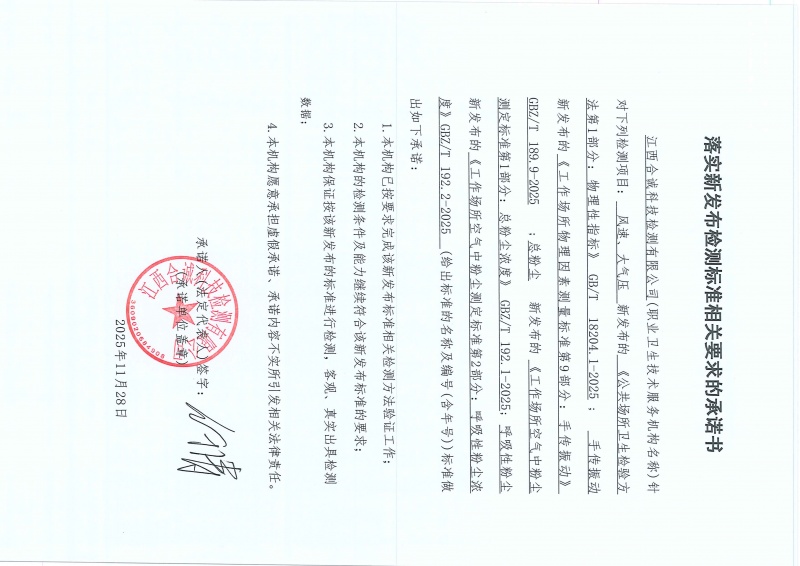 落实新发布检测标准相关要求的承诺书
江西合诚科技检测有限公司(职业卫生技术服务机构名称)针
对下列检测项目: 风速、大气压 新发布的 《公共场所卫生检验方
法第1部分: 物理性指标》 GB/T 18204.1-2025 ; 手传振动
新发布的 《工作场所物理因素测量标准第9部分: 手传振动》
GBZ/T 189.9-2025 ; 总粉尘 新发布的 《工作场所空气中粉尘
测定标准第1部分: 总粉尘浓度》 GBZ/T 192.1-2025; 呼吸性粉尘
新发布的 《工作场所空气中粉尘测定标准第2部分: 呼吸性粉尘浓
度》GBZ/T 192.2-2025 (给出标准的名称及编号(含年号))标准做
出如下承诺:
1.本机构已按要求完成该新发布标准相关检测方法验证工作;
2.本机构的检测条件及能力继续符合该新发布标准的要求;
3.本机构保证按该新发布的标准进行检测, 客观、真实出具检测
数据;
4.本机构愿意承担虚假承诺、承诺内容不实所引发相关法律责任。
承诺人(法定代表人)签字:
(承诺单位盖章)
江西合诚科技检测有限公司
2025年11月28日